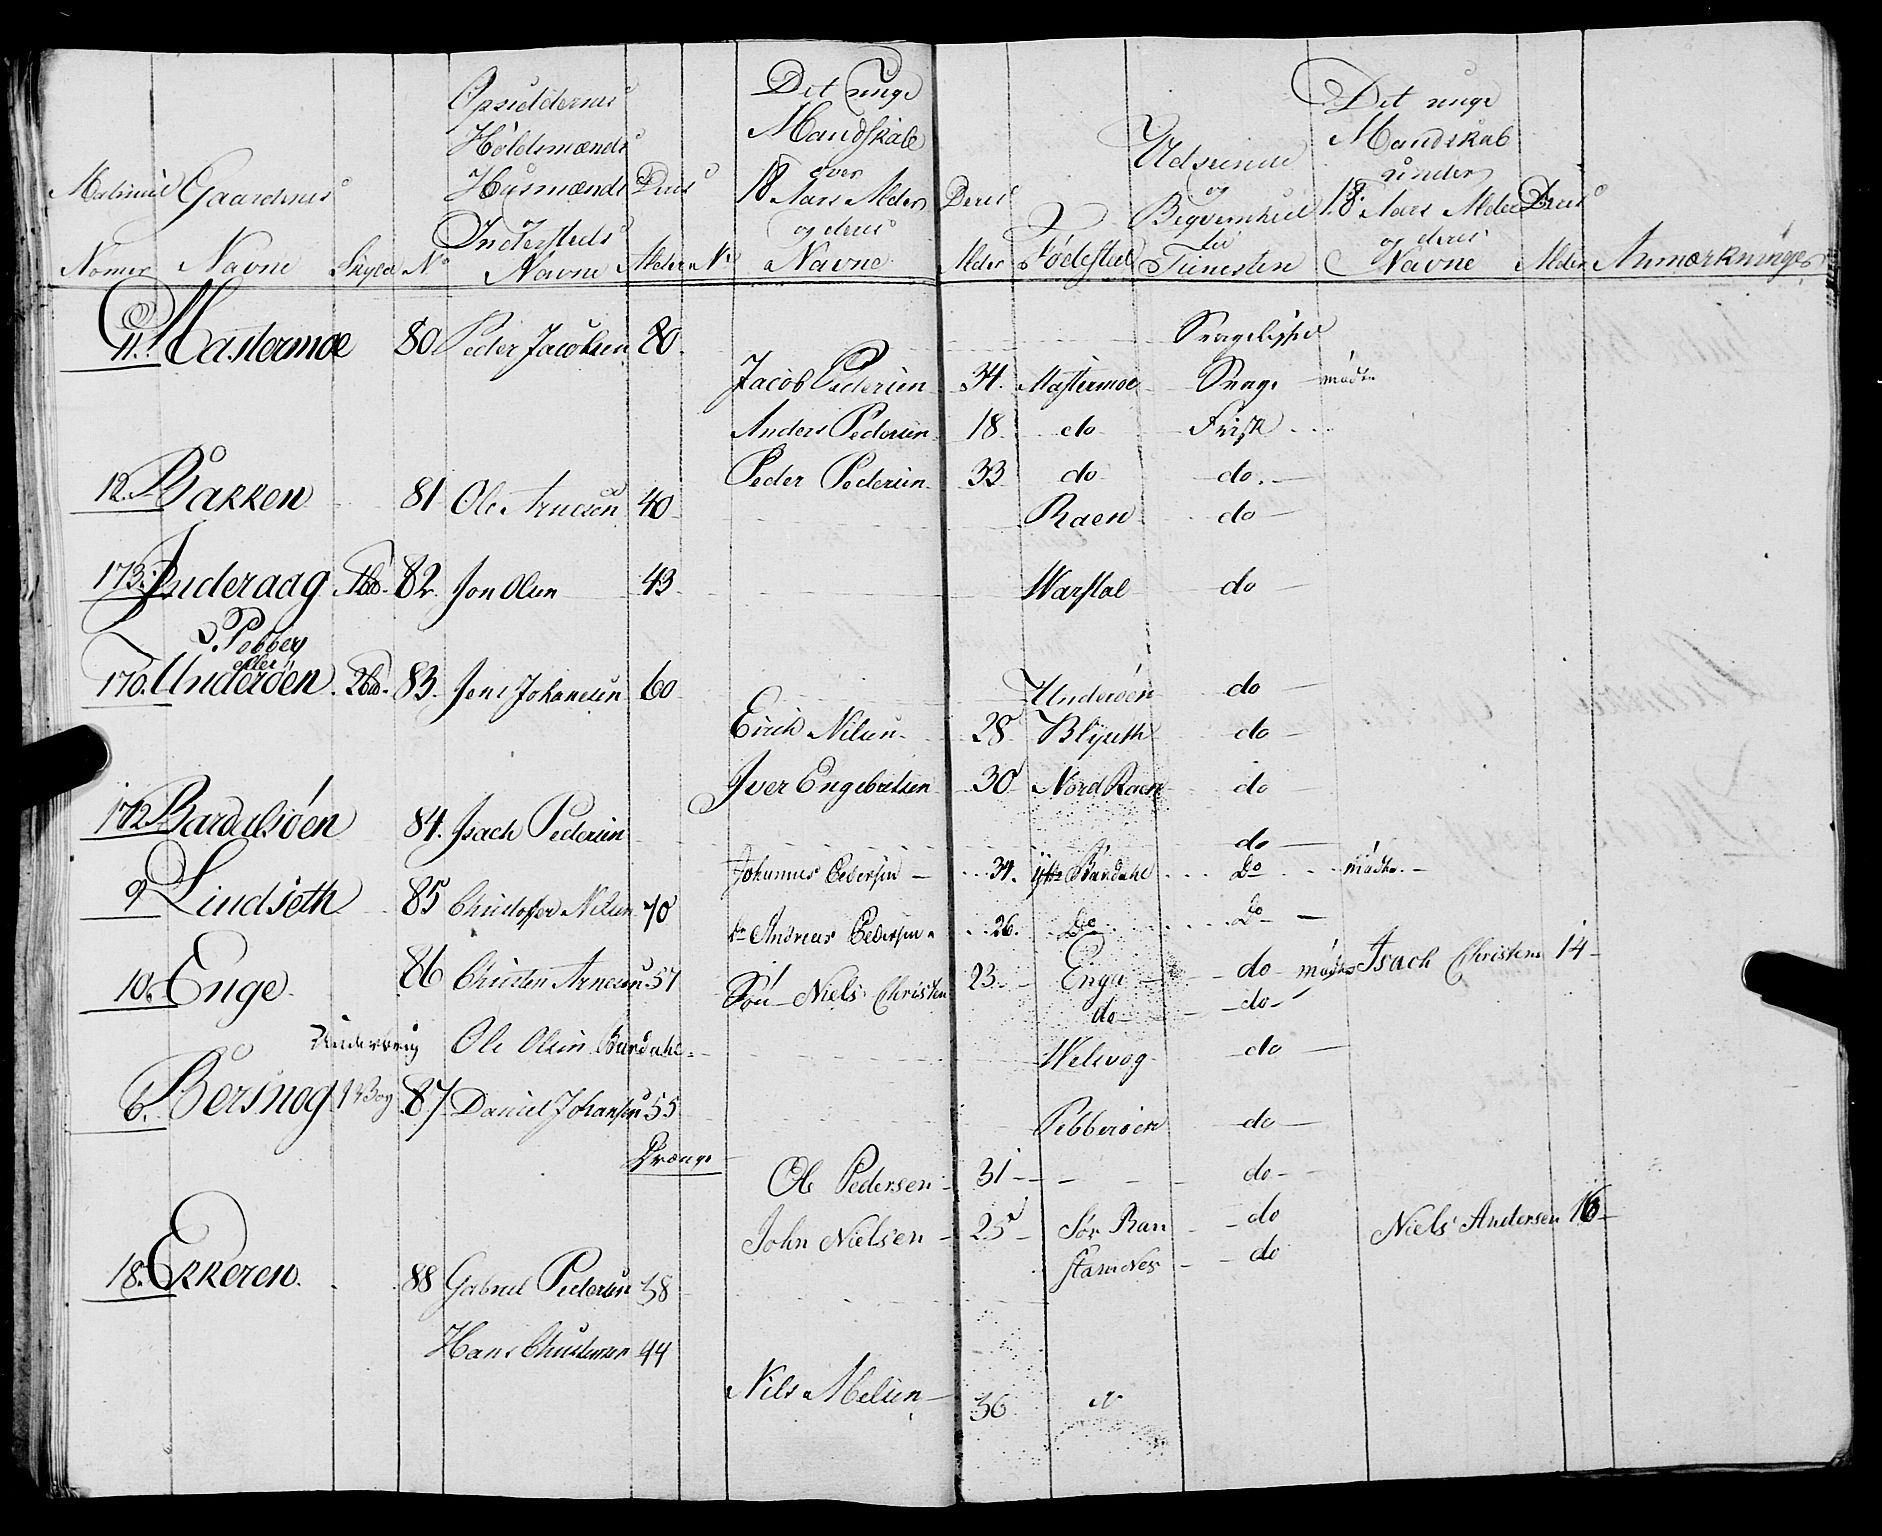 Matricul Nomer
Gaardenes Navne
Skyld
No
Opsiddernes Holdsmænds Husmænds Indersteds Navne
Deres Alder
No
Det unge Mandskab over 18 Aars Alder og deres Navne
Deres Alder
Fødested
Udseende og Beqvemhed til Tienesten
Det unge Mandskab under 18 Aars Alder og deres Navne
Deres Alder
Anmærkninger
11. Mastermoe 80. Peder Jacobsen 80.
Jacob Pedersen 34. Mastermoe Svag mødte
Anders Pedersen 18. do Frisk
Peder Pedersen 33 do do.
12. Bakken 81 Ole Arnesen 40 Raen do
173. Inderaag 82. Jon Olsen 43 do
Pebber
eller
170. Underøen 83. Jens Johansen 60 Underøen do
Erich Nilsen 28 do
Iver Engebretsen 30 Nord Raen do
172 Bardalsøen 84. Isach Pedersen do
Johannes Pedersen 34. Bardahl Do mødte
9 Lindseth 85 Christoffer Nilsen 70
Andreas Pedersen 26. Do Do
10. Enge 86 Christen Arnesen 57
Søn Niels Christen 23. Enga do mødte Isach Christens 14
do do
Underbrug Ole Olsen Bardahl Welsvog do
6. Bersnog 1 Bog 87 Daniel Johansen 55 Pebberøen do
Drænge
Ole Pedersen 31 do
John Nielsen 25 Sør Ran do Niels Andersen 16
18. Ekkeren. 88 Gabriel Pedersen 38 do
Hans Christensen 44
Nils Nielsen 36